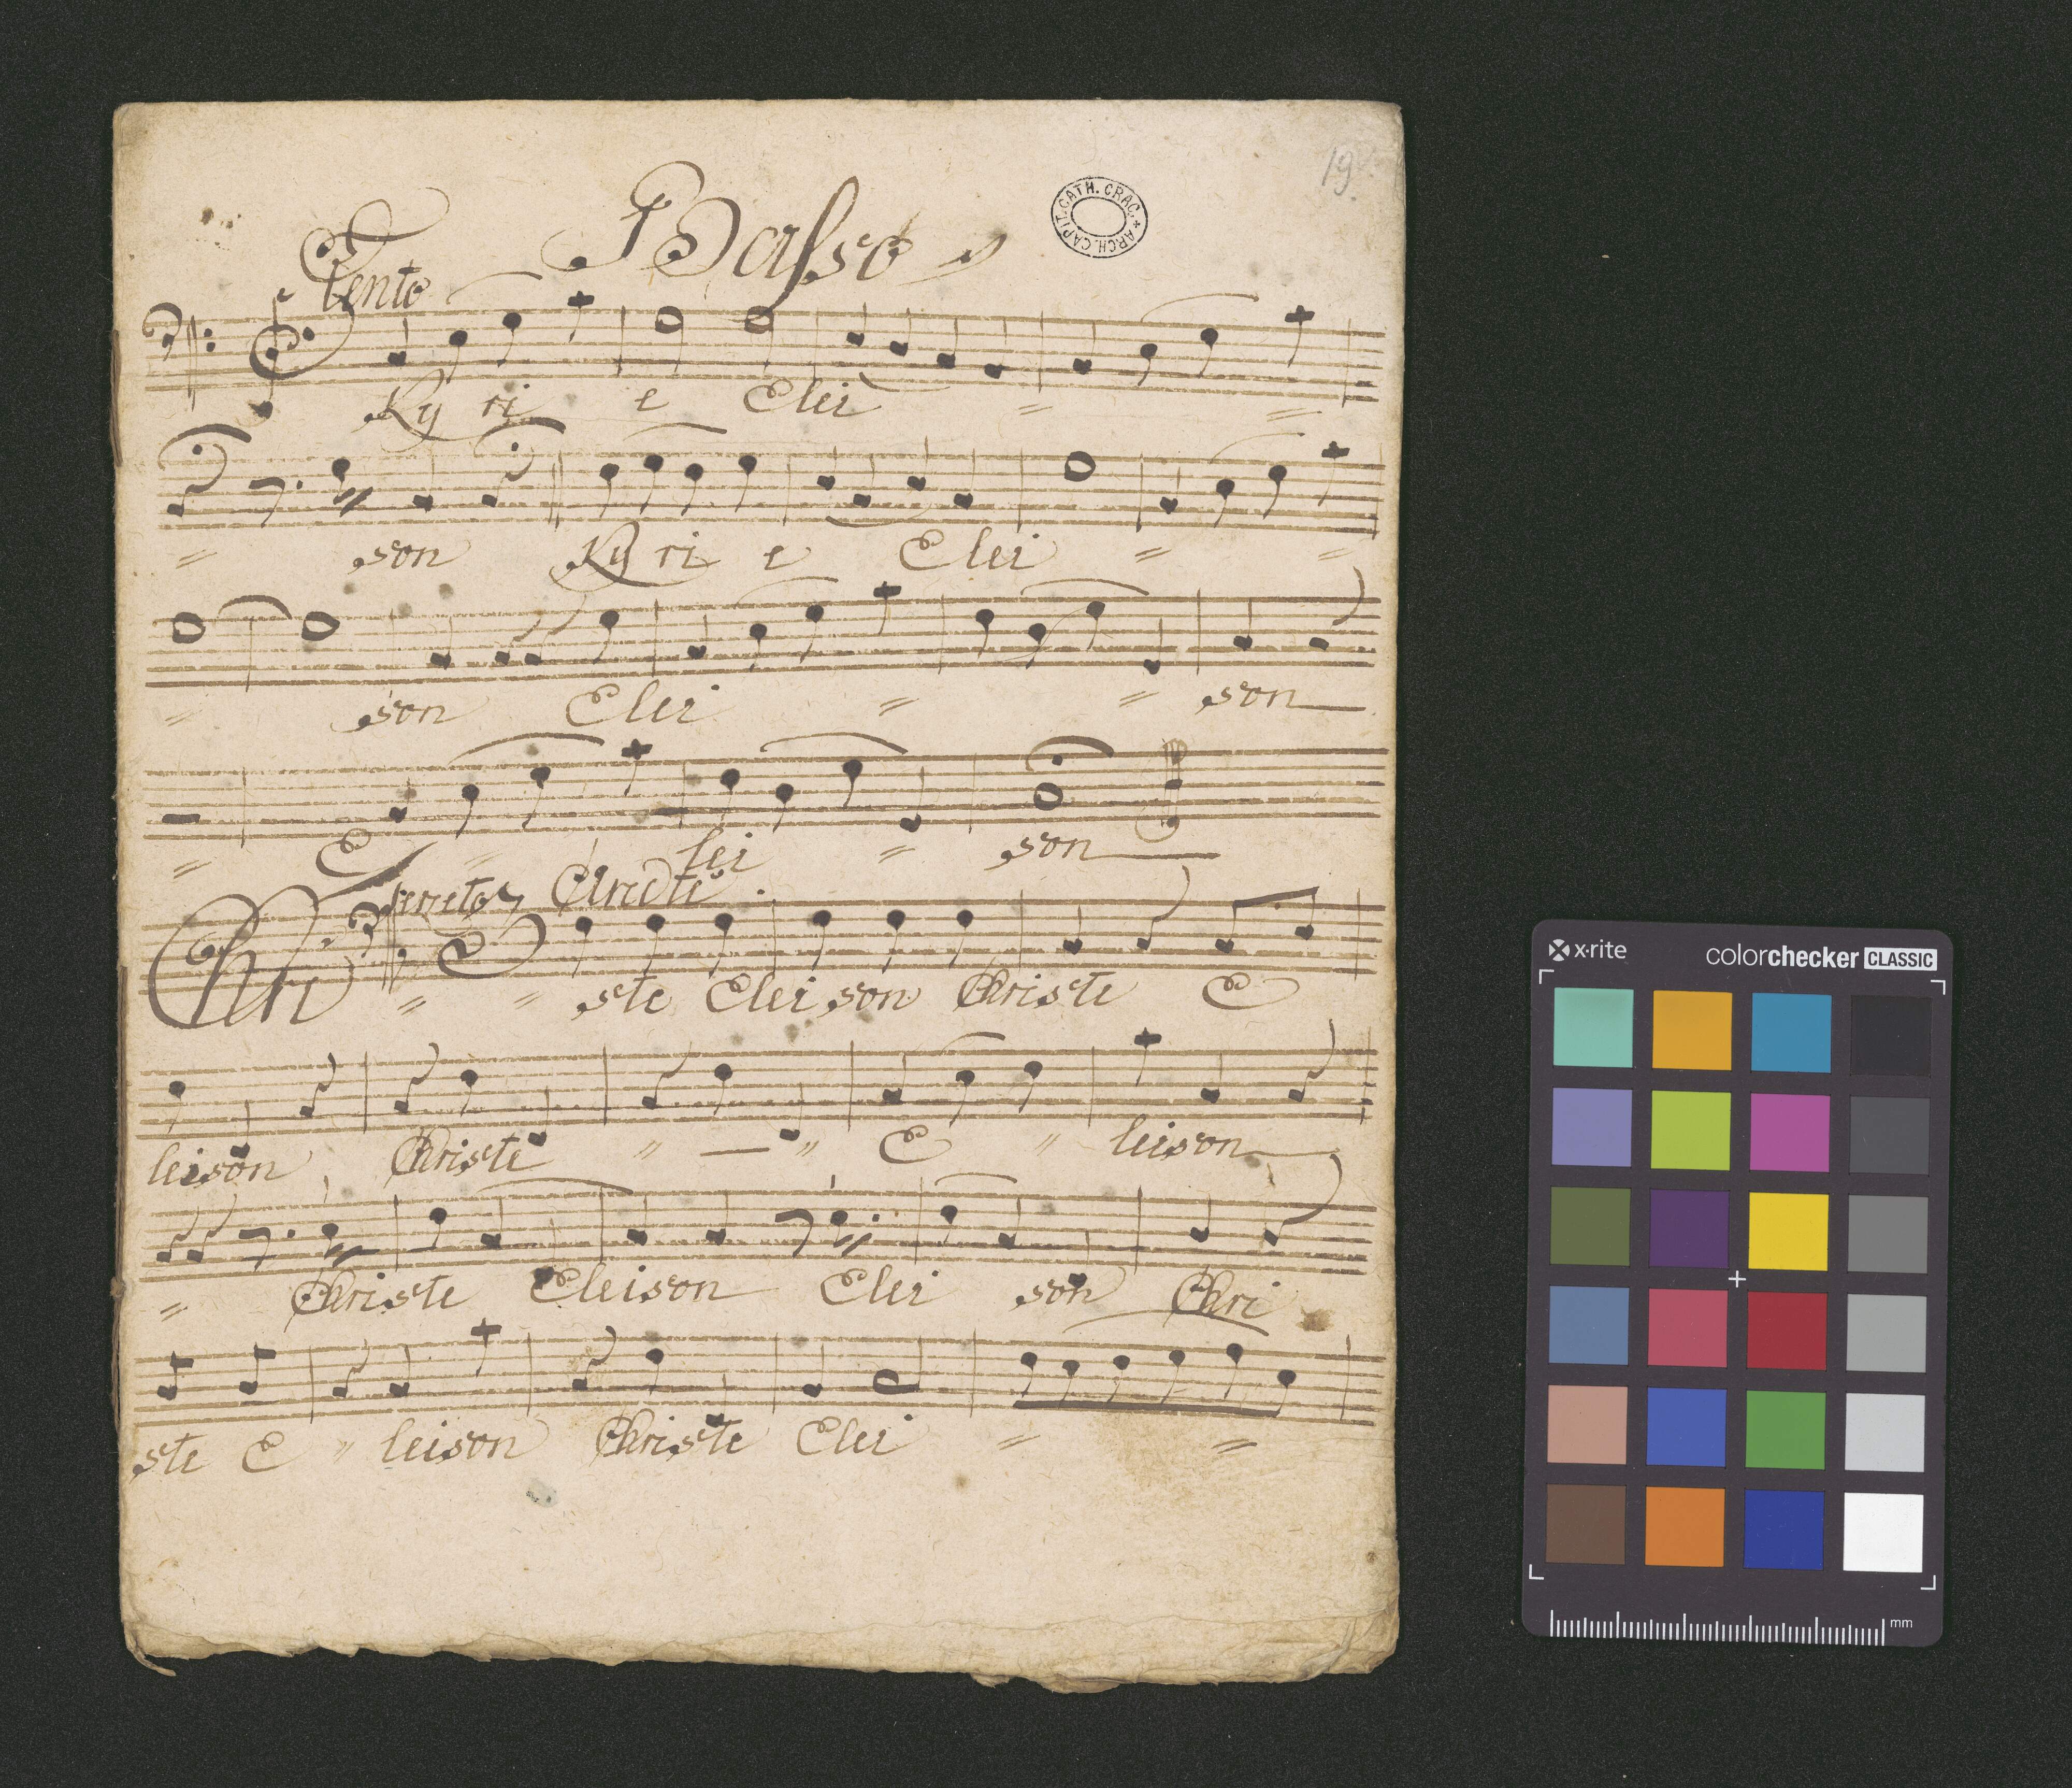 19.
Basso
ARCH. CAPIT. CATH. CRAC. *
Lento
Ky ri e Elei = =
= son Ky ri e Elei = =
= son Elei = = son
= E = lei = son
Andte
Chri = = ste Elei son Christe E
leison Christe " — " E " leison
= Christe Eleison Elei son Chri
ste E " leison Christe Elei = =
x·rite colorchecker CLASSIC
mm